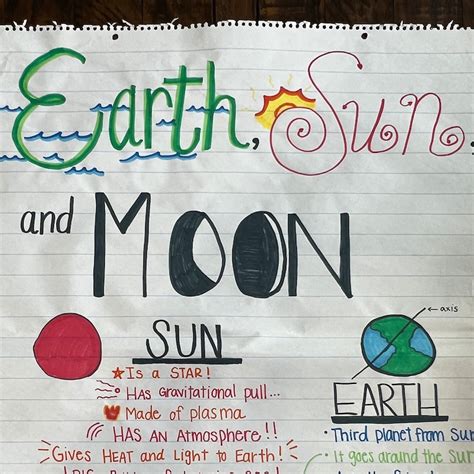 Earth, Sun,
and MOON
SUN
Is a STAR!
Has Gravitational pull...
Made of plasma
HAS AN ATMOSPHERE!!
Gives HEAT and Light to Earth!
axis
EARTH
• Third planet from Sun
• It goes around the Sun